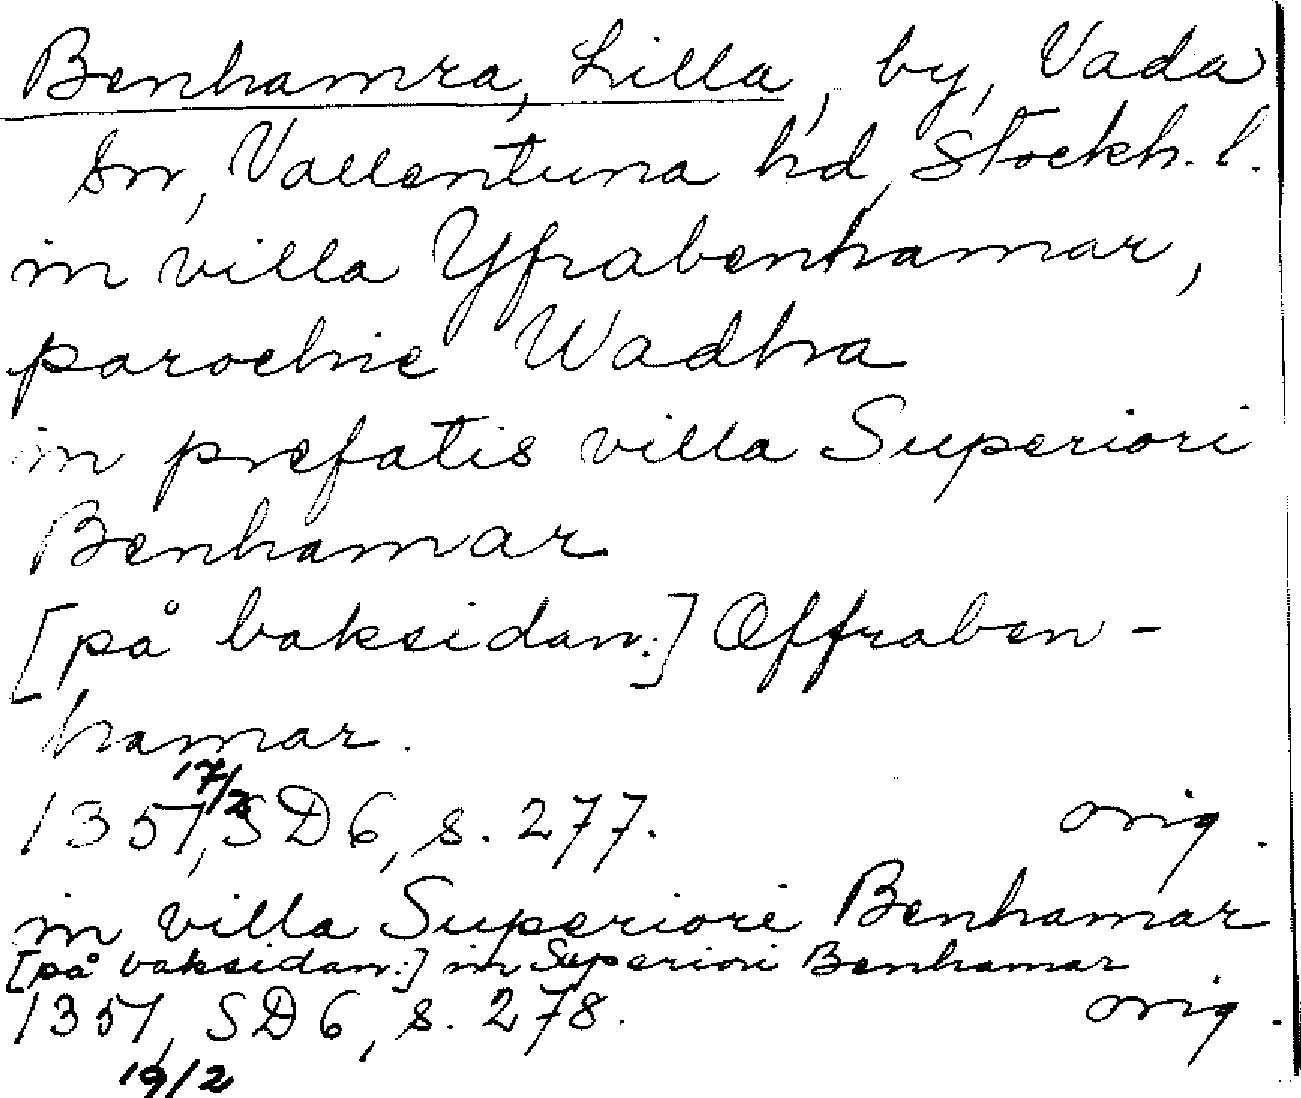 Benhamra, Lilla, by, Vada
sn, Vallentuna hd, Stockh. l.
in villa Yfrabenhamar,
parochie Wadha
in prefatis villa Superiori
Benhamar
[på baksidan:] Offraben-
hamar.
17/2
1351, SD 6, s. 277. orig.
in villa Superiori Benhamar
[på baksidan:] in Superiori Benhamar
1351, SD 6, s. 278. orig.
19/2